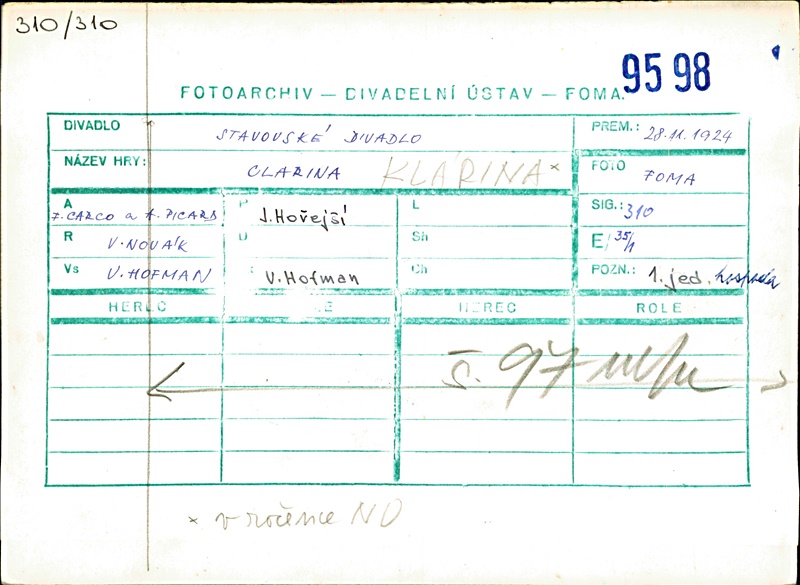 310/310
95 98
FOTOARCHIV — DIVADELNÍ ÚSTAV — FOMA
DIVADLO STAVOVSKÉ DIVADLO PREM.: 28.11.1924
NÁZEV HRY: CLARINA KLARINA × FOTO FOMA
A F. CARCO a A. PICARD P J. Hořejší L SIG.: 310
R V. NOVÁK D Sh E/ 35/1
Vs V. HOFMAN : V. Hofman Ch POZN.: 1. jed. hospoda
HEREC LE HEREC ROLE
š. 97 m/m
× v ročence ND